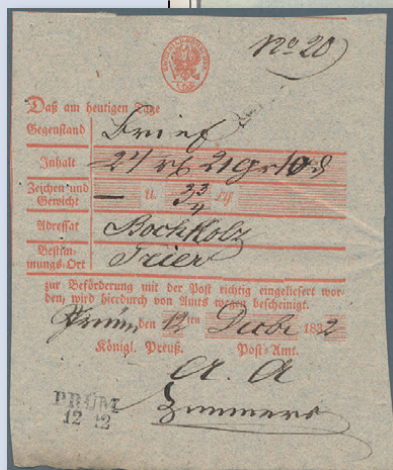 No 20
Daß am heutigen Tage
Gegenstand Brief
Inhalt 24 rℓ 21 gr 10 ₰
Zeichen und Gewicht — u. 3 3/4
Adressat Bochkolz
Bestim- mungs-Ort Trier
zur Beförderung mit der Post richtig eingeliefert wor-
den, wird hierdurch von Amts wegen bescheinigt.
Prüm den 12 ten Decbr 1832
Königl. Preuß. Post-Amt.
A. A
Zummers
PRÜM
12 12